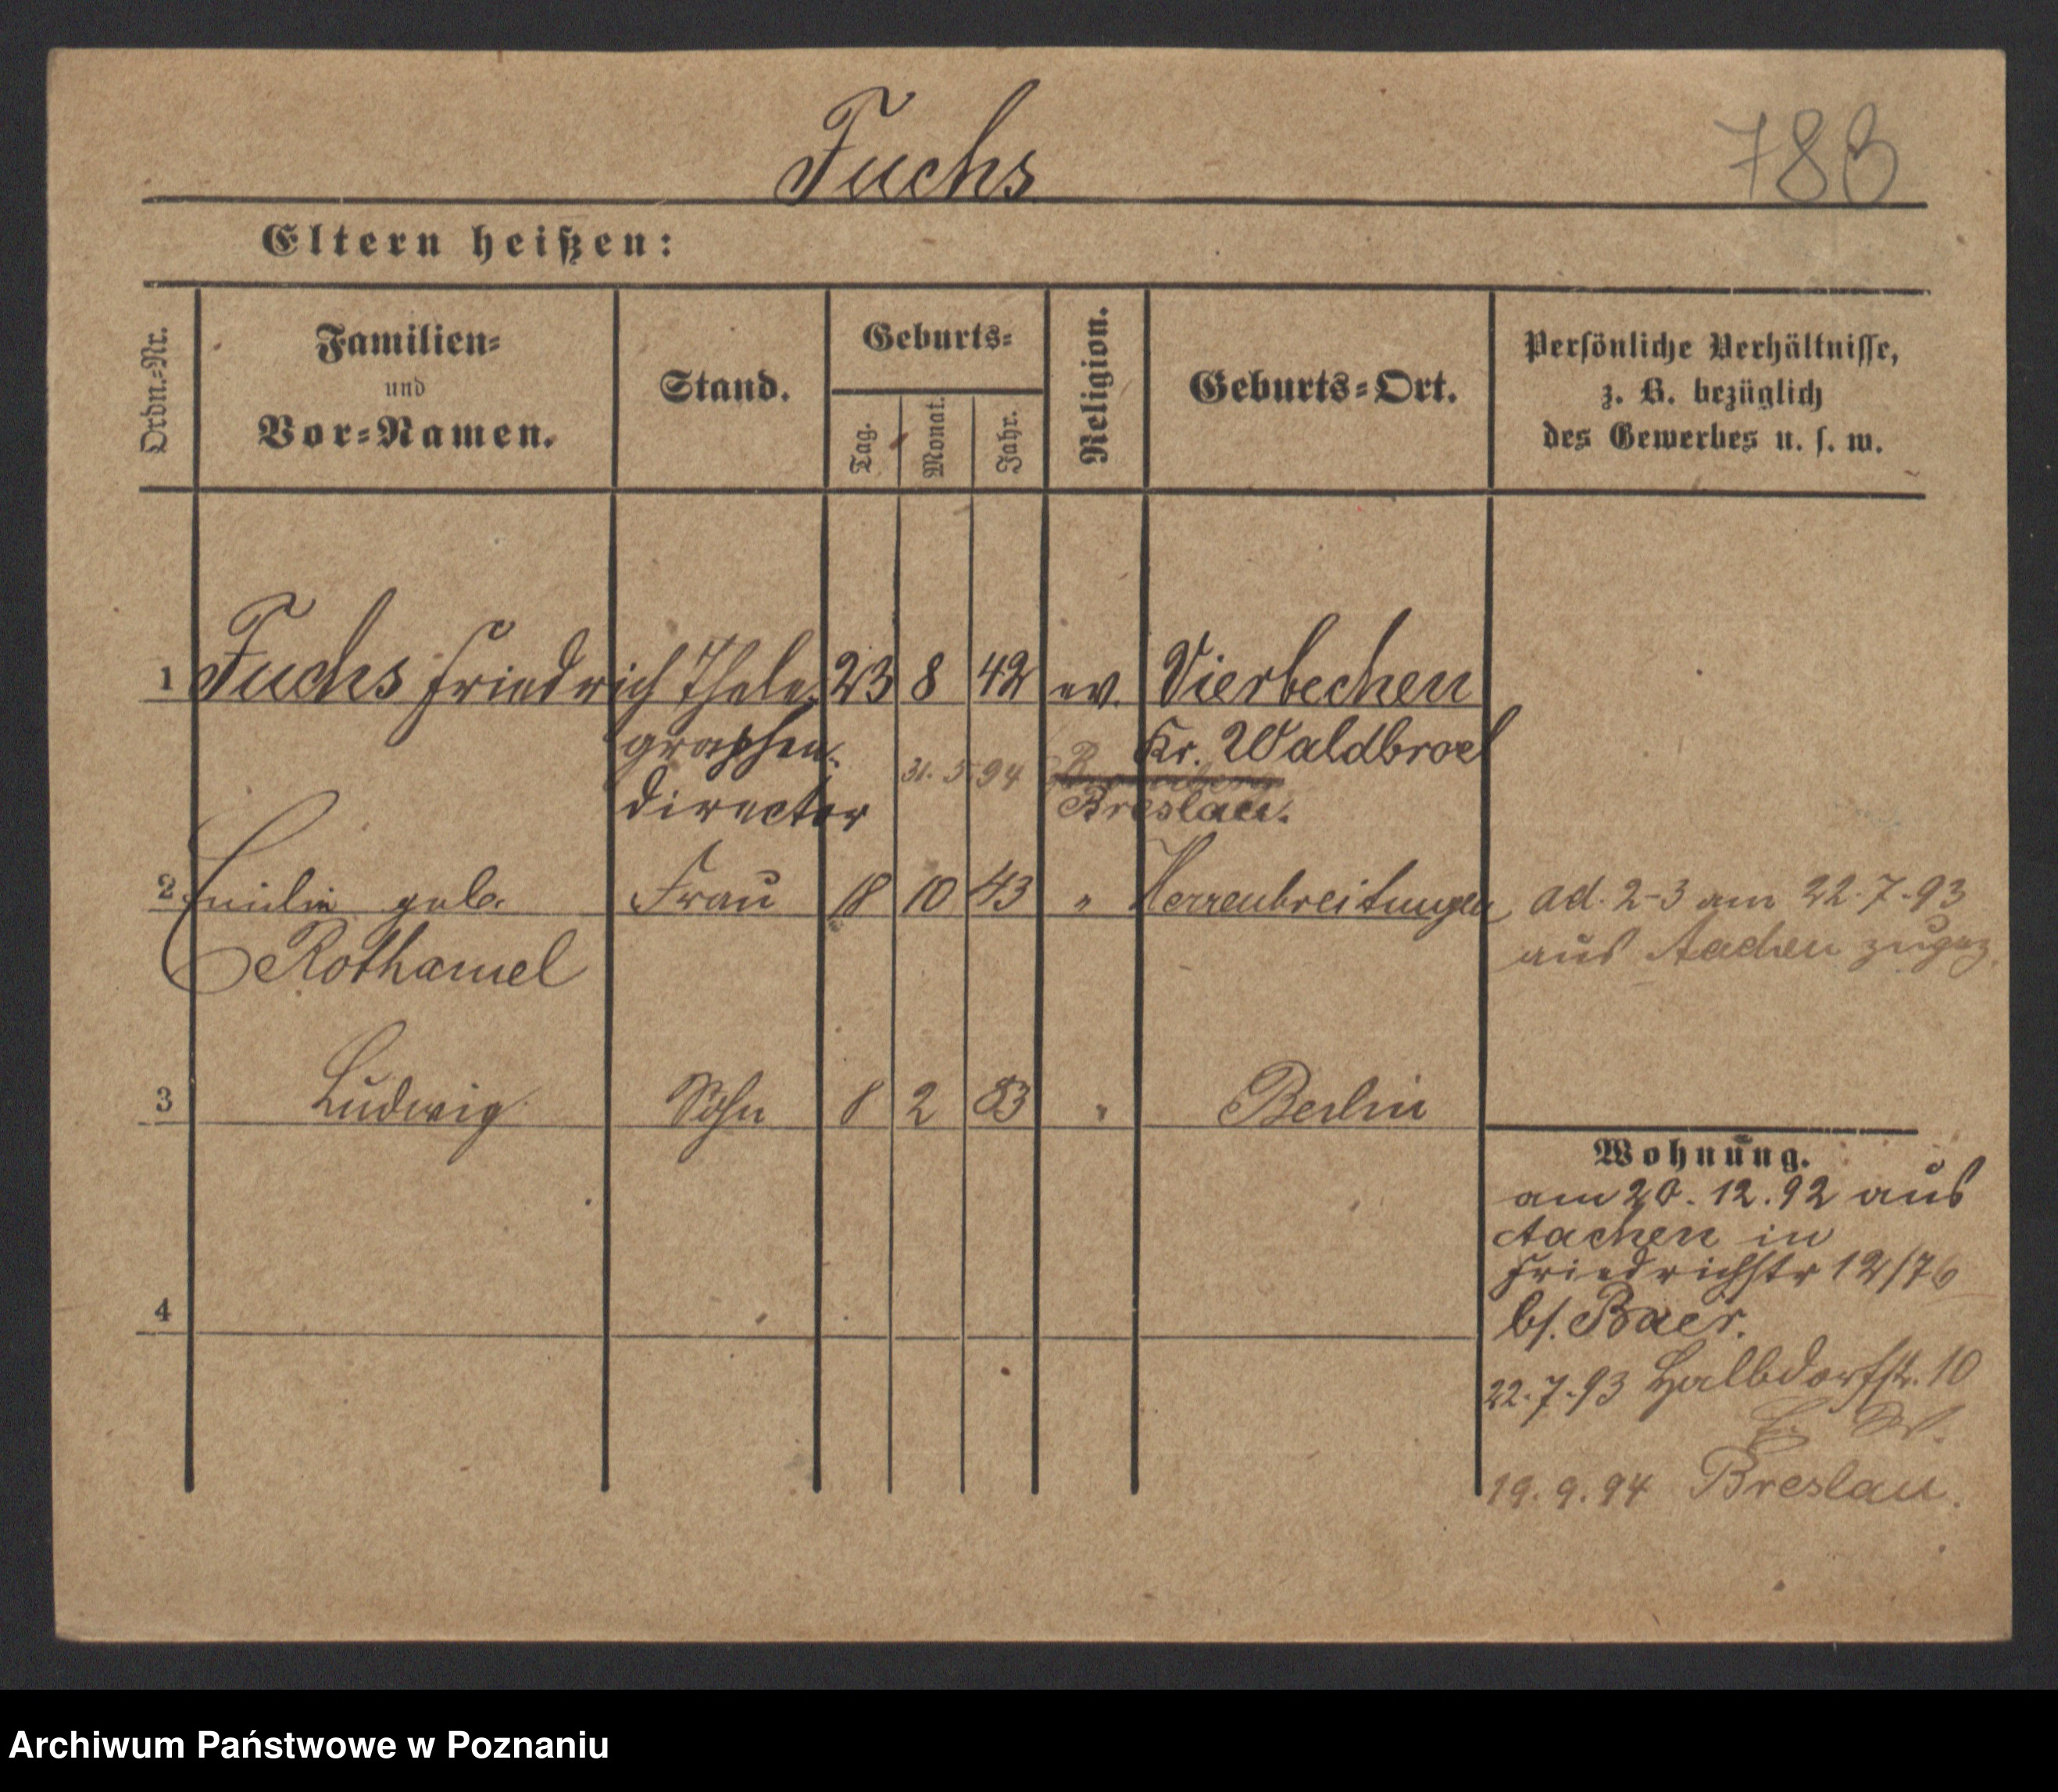 Fuchs
788
Eltern heißen:
Ordn.-Nr.
Familien-
und
Vor-Namen.
Stand.
Geburts-
Tag.
Monat.
Jahr.
Religion.
Geburts-Ort.
Persönliche Verhältnisse,
z. B. bezüglich
des Gewerbes u. s. w.
1 Fuchs Friedrich Thele- 23 8 42 ev. Vierbechen
graphen- Kr. Waldbroel
31. 5 94
director Breslau.
2 Emilie geb. Frau 18 10 43 " Herrenbreitungen ad. 2-3 am 22.7.93
Rothamel aus Aachen zugez.
3 Ludwig Sohn 8 2 83 " Berlin
Wohnung.
am 20.12.92 aus
Aachen in
Friedrichstr 12/76
bs. Baer.
4
22.7.93 Halbdorfstr. 10
19.9.94 Breslau.
Archiwum Państwowe w Poznaniu